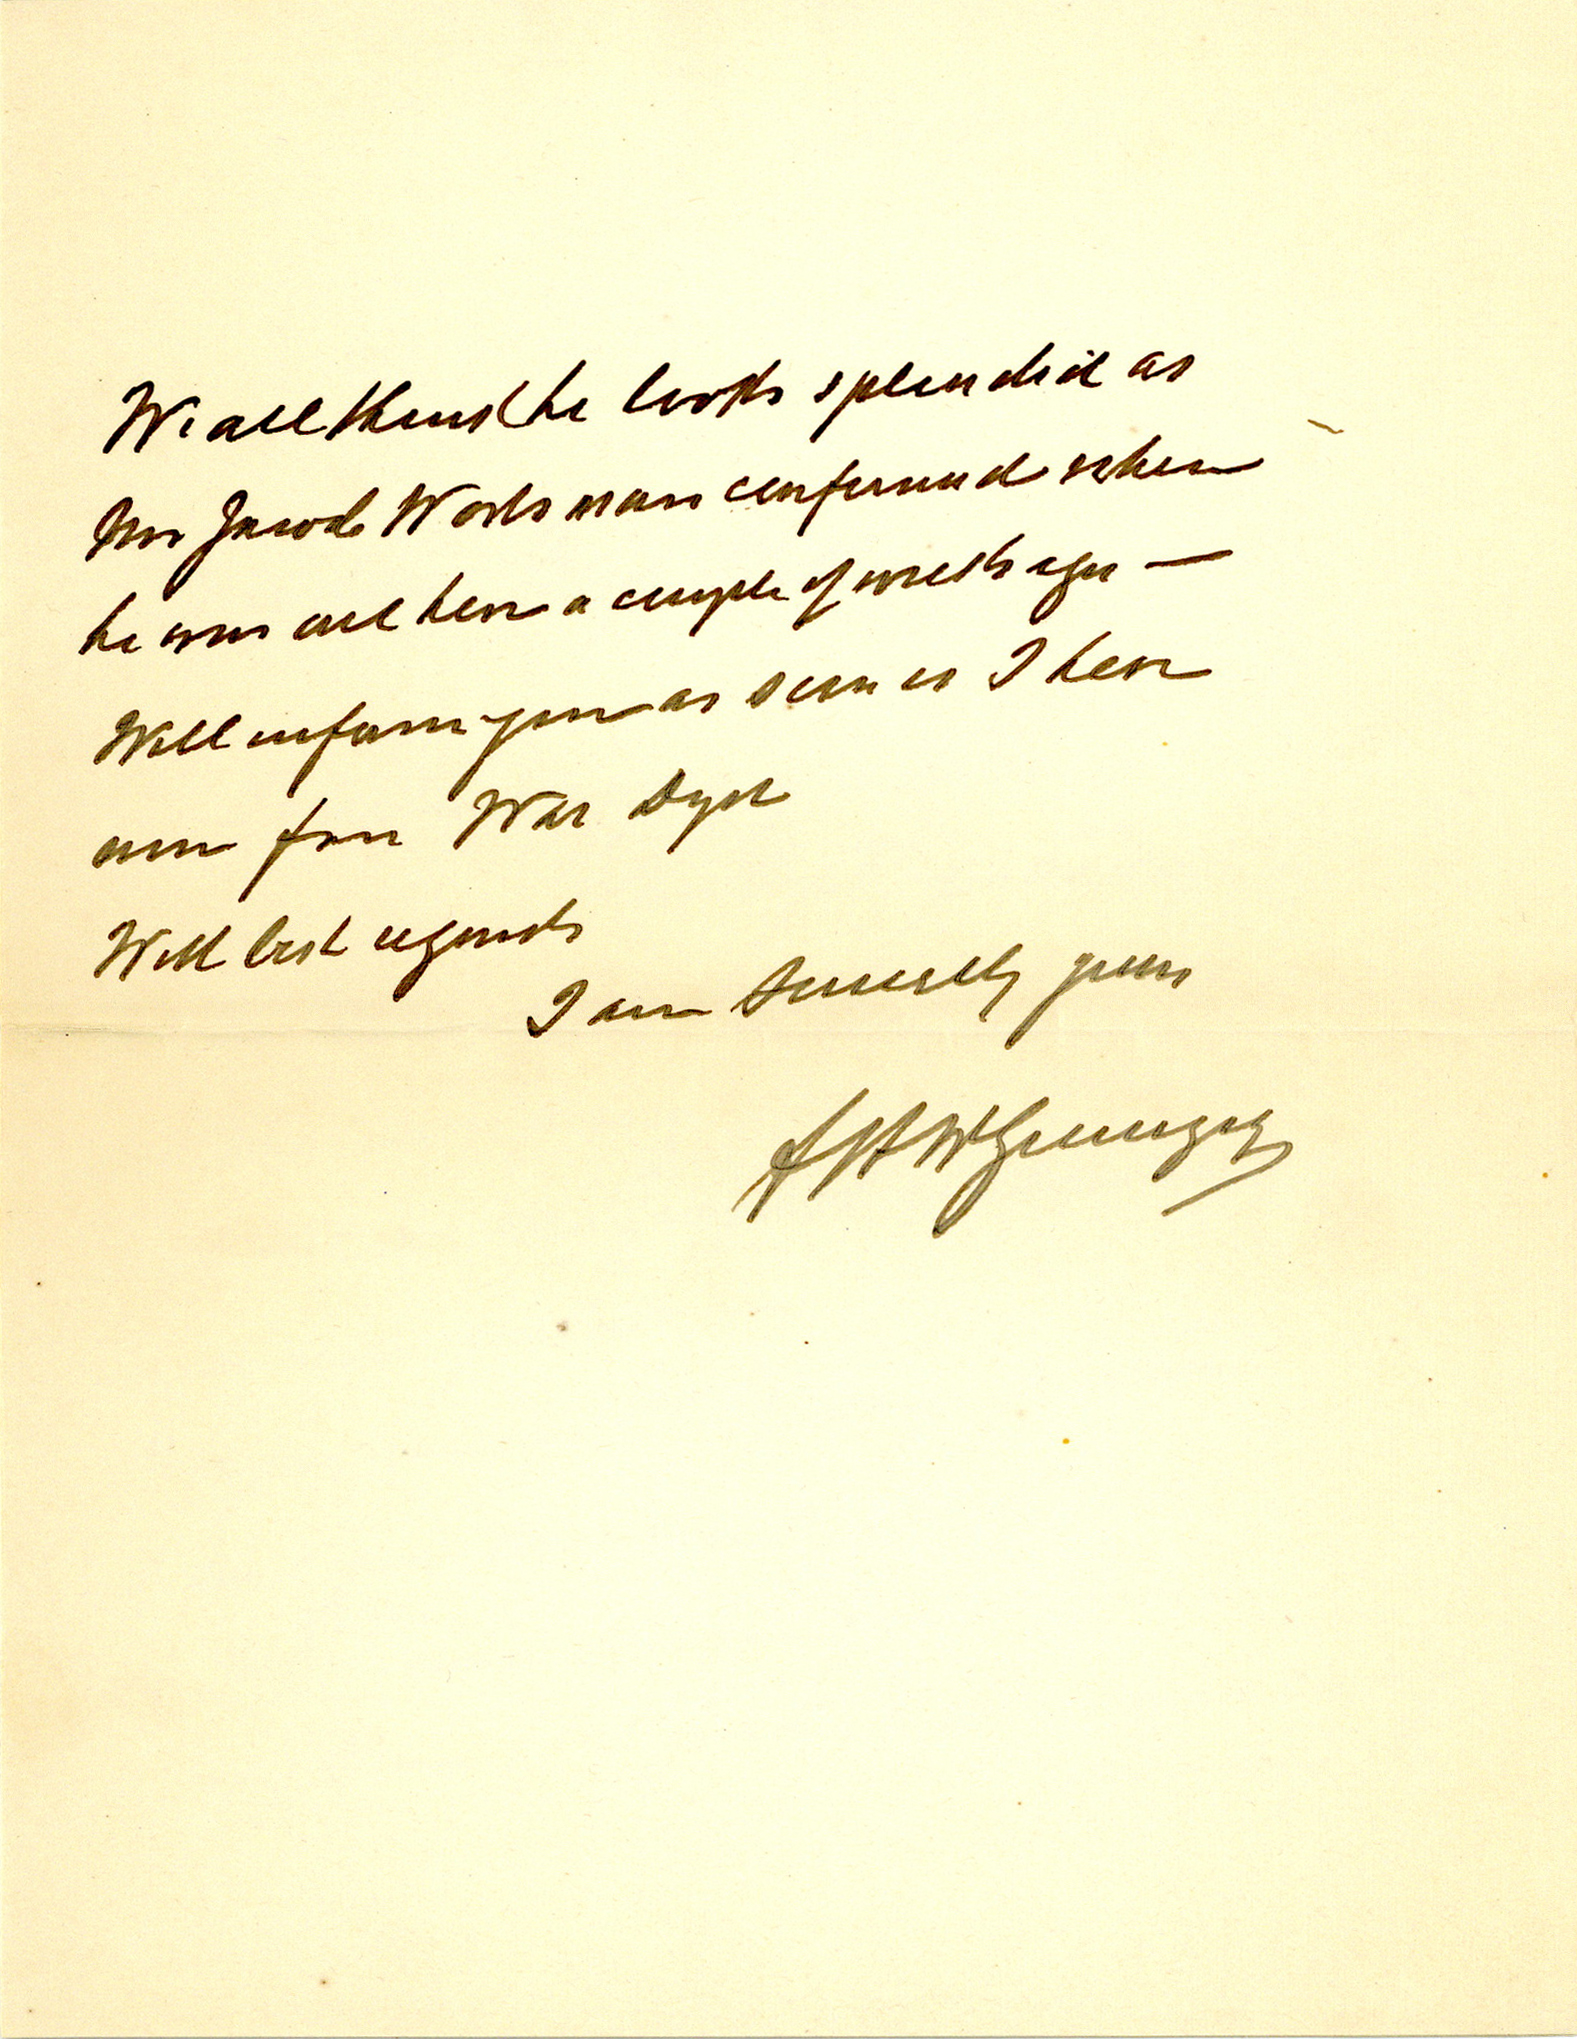 We all think he looks splendid as
Mr Jacob Workman confirmed when
he was out here a couple of weeks ago —
Will inform you as soon as I hear
from War Dept
With best regards
I am Sincerely yours